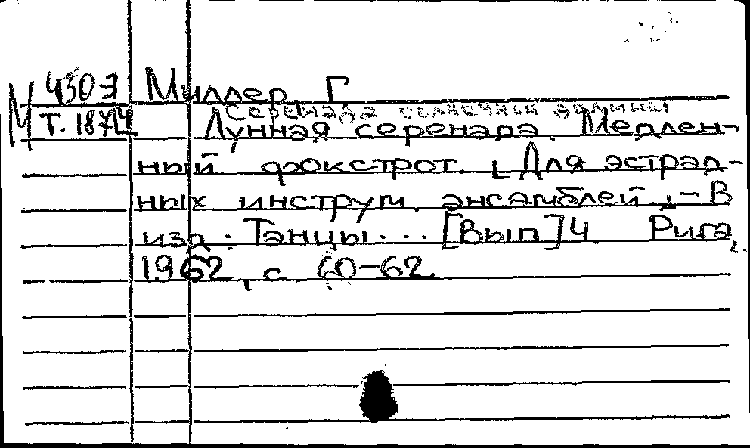 М 430э Миллер, Г.
Серенада солнечной долины
Т. 1871/4 Лунная серенада. Медлен-
ный фокстрот. [Для эстрад-
ных инструм. ансамблей]. - В
изд.: Танцы... [Вып.] 4. Рига,
1962, с. 60-62.